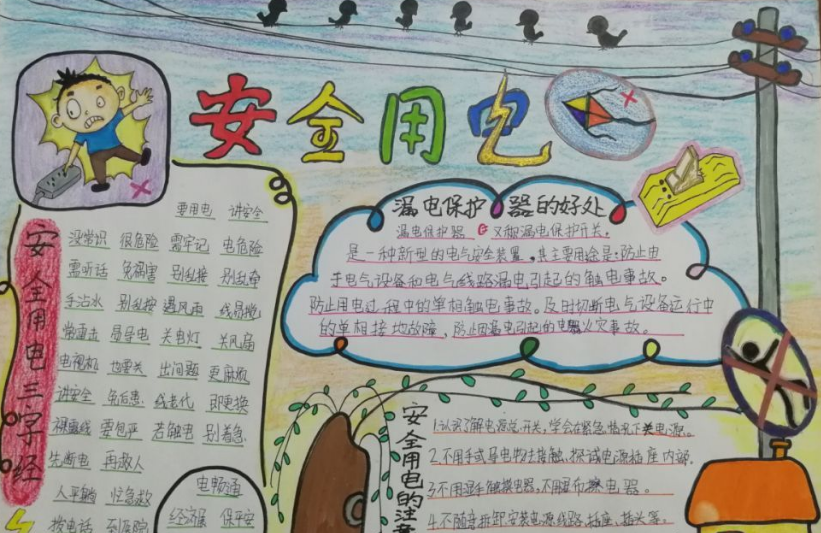 安全用电
安全用电三字经
要用电 讲安全
没常识 很危险 需牢记 电危险
需听话 免祸害 别乱接 别乱牵
手沾水 别乱按 遇风雨 线易搅
常雷击 易导电 关电灯 关风扇
电视机 也要关 出问题 更麻烦
讲安全 免后患 线老代 即更换
裸露线 要包严 若触电 别着急
先断电 再救人
人平躺 忙急救
拨电话 到医院
电畅通
经济展 保平安
漏电保护器的好处
漏电保护器 又称漏电保护开关,
是一种新型的电气安全装置,其主要用途是:防止由
于电气设备和电气线路漏电引起的触电事故。
防止用电过程中的单相触电事故。及时切断电气设备运行中
的单相接地故障,防止因漏电引起的电器火灾事故。
安全用电的注意
1.认识了解电源总开关,学会在紧急情况下关电源。
2.不用手或导电物去接触、探试电源插座内部.
3.不用湿手触摸电器,不用湿布擦电器。
4.不随意拆卸、安装电源线路、插座、插头等。